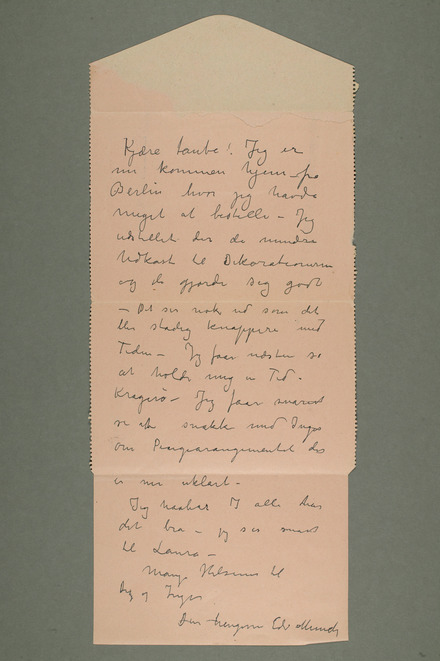 Kjære tante! Jeg er
nu kommen hjem fra
Berlin hvor jeg havde
meget at bestille – Jeg
udstillet der de mindre
Udkast til Dekorationerne
og de gjorde sig godt
– Det ser nok ud som det
blir stadig knappere med
Tiden – Jeg faar næsten se
at holde mig en Tid
Kragerø – Jeg faar snarest
se at snakke med Inger
om Pengearangementet der
er mig uklart –
Jeg haaber I alle har
det bra – jeg ser snart
til Laura –
Mange Hilsener til
Dig og Inger
Din hengivne Edv Munch